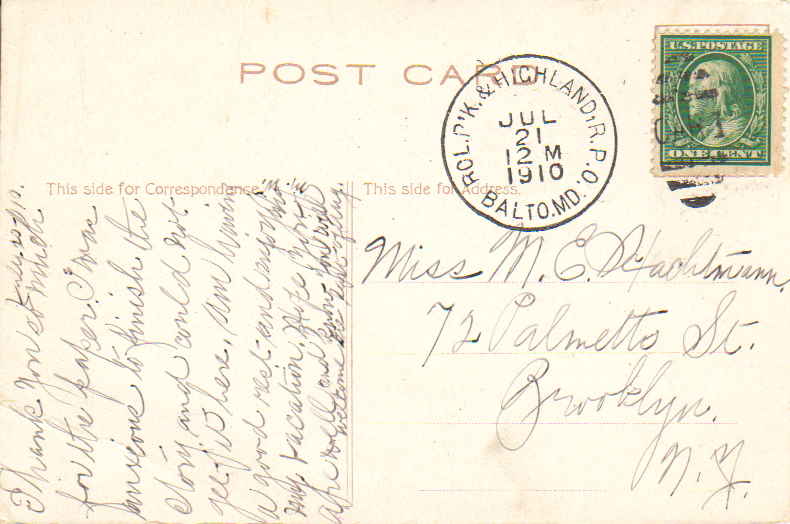 POST CARD
ROL. P'K. & HIGHLAND, R.P.O.
JUL
21
12 M
1910
BALTO. MD.
U.S. POSTAGE
ONE CENT
This side for Correspondence.
This side for Address.
Thank you so much
for the paper. I was
anxious to finish the
story and could not
get it here. Am having
a good rest and enjoying
my vacation. Hope you
are well and
Miss M. E. Wachtmann.
72 Palmetto St.
Brooklyn.
N.Y.